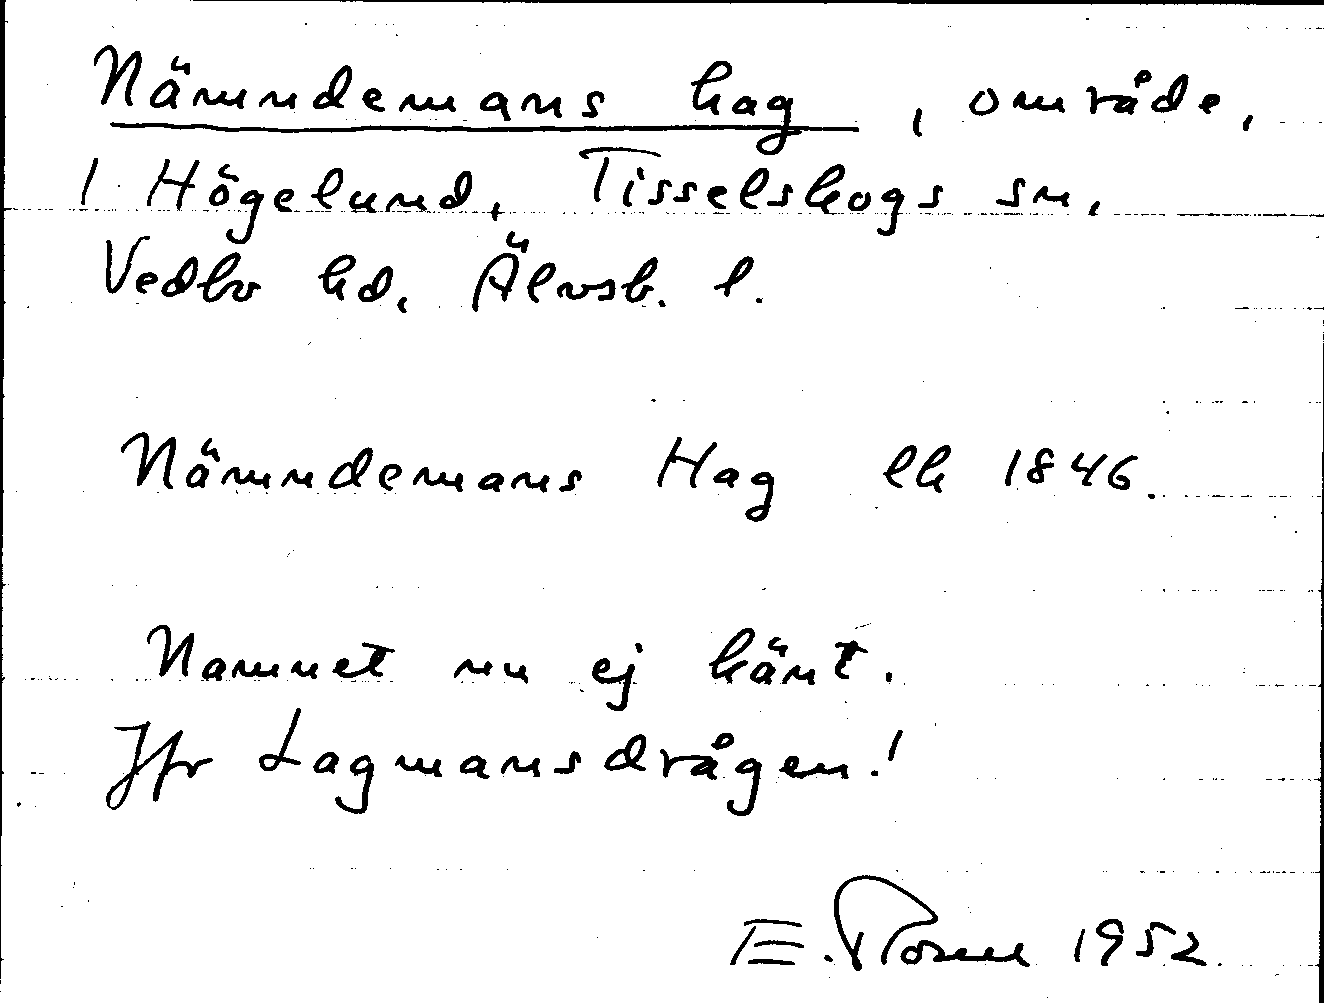 Nämndemans hag, område,
1 Högelund, Tisselskogs sn,
Vedbo hd, Älvsb. l.
Nämndemans Hag lh 1846.
Namnet nu ej känt.
Jfr Lagmansdrågen!
E. Rosell 1952